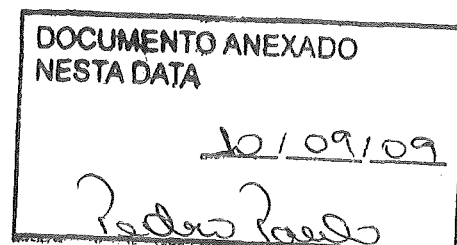 DOCUMENTO ANEXADO
NESTA DATA
10/09/09
Pedro